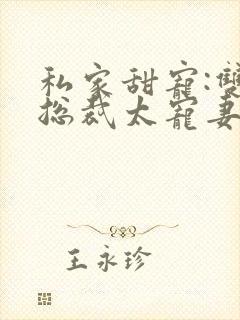 私家甜寵:雙
總裁太寵妻
王永珍